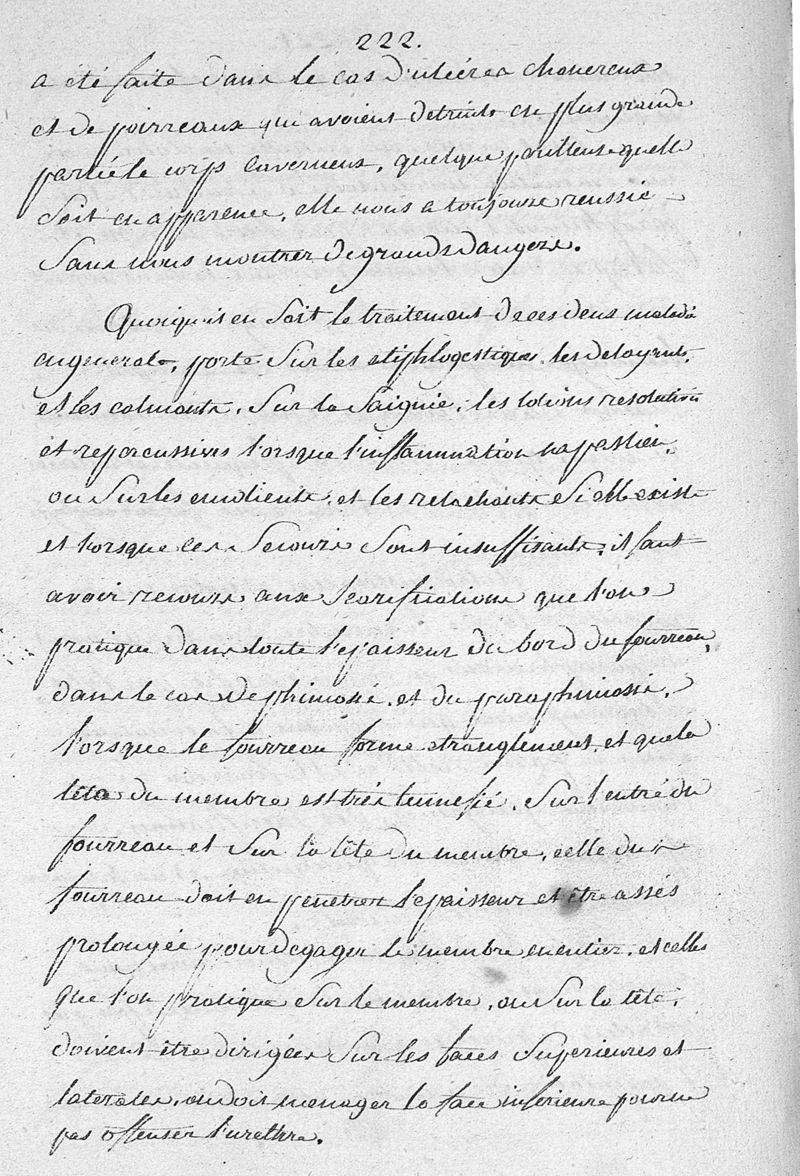 222.
a été faite dans le cas d'ulcéres chancreux
et de poirreaux qui avoient detruits en plus grande
partie le corps caverneux, quelque perilleuse quelle
soit en apparence, elle nous a toujours reussie
sans nous montrer de grands dangers.
Quoiqu'il en soit le traitement de ces deux maladi
en general, porte sur les atiphlogestiques, les delayants,
et les calmants, sur la saignée, les lotions resolutives
et repercussives lorsque l'inflammation n'a pas lieu,
ou sur les emolients, et les relachants si elle existe
et lorsque ces secours sont insuffisants, il faut
avoir recours aux scarifications que l'on
pratique dans toute l'epaisseur du bord du fourreau,
dans le cas de phimosis, et du paraphimosis,
lorsque le fourreau forme etranglement, et que la
tête du membre est très tumefié, sur l'entré du
fourreau et sur la tête du membre, celle du
fourreau doit en penetrer l'epaisseur et être assés
prolongée pour degager le membre en entier, et celles
que l'on pratique sur le membre, ou sur la tête,
doivent être dirigées sur les faces superieures et
laterales, on doit menager la face inferieure pour ne
pas offenser l'urethre.